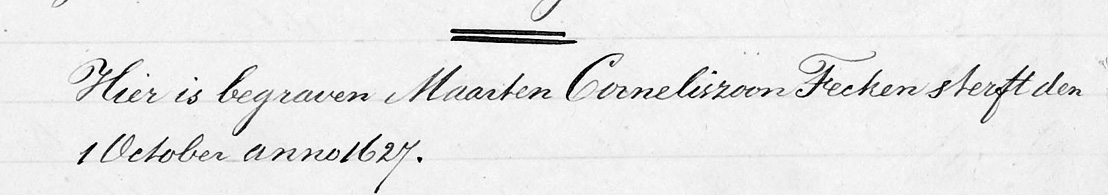 Hier is begraven Maarten Corneliszoon Fecken sterft den
1 October anno 1627.